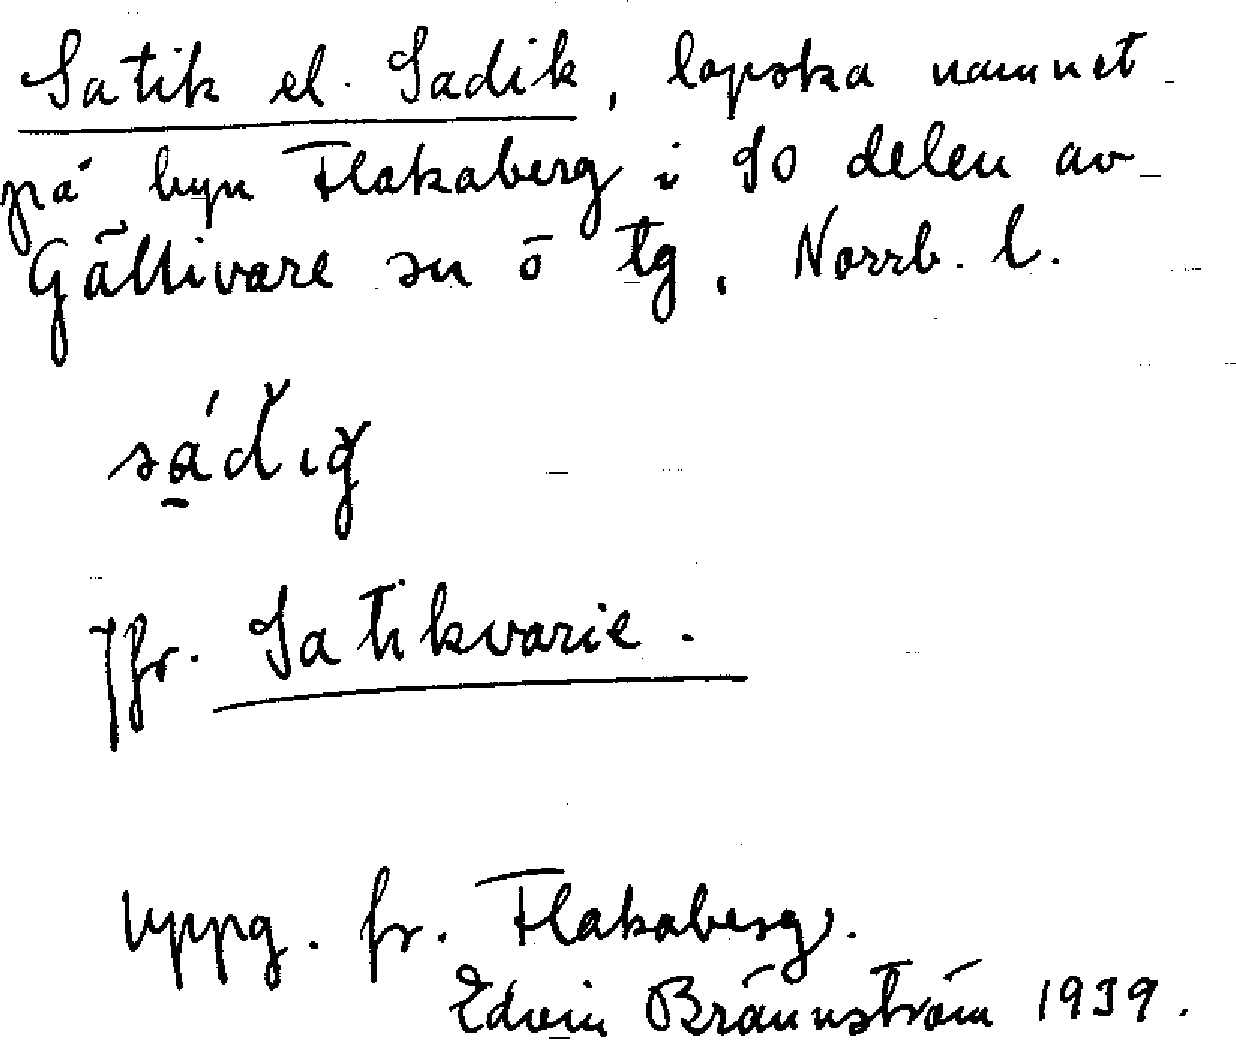 Satik el. Sadik, lapska namnet
på byn Flakaberg i SO delen av
Gällivare sn o tg, Norrb. l.
Jfr. Satikvarie.
Uppg. fr. Flakaberg.
Edvin Brännström 1939.